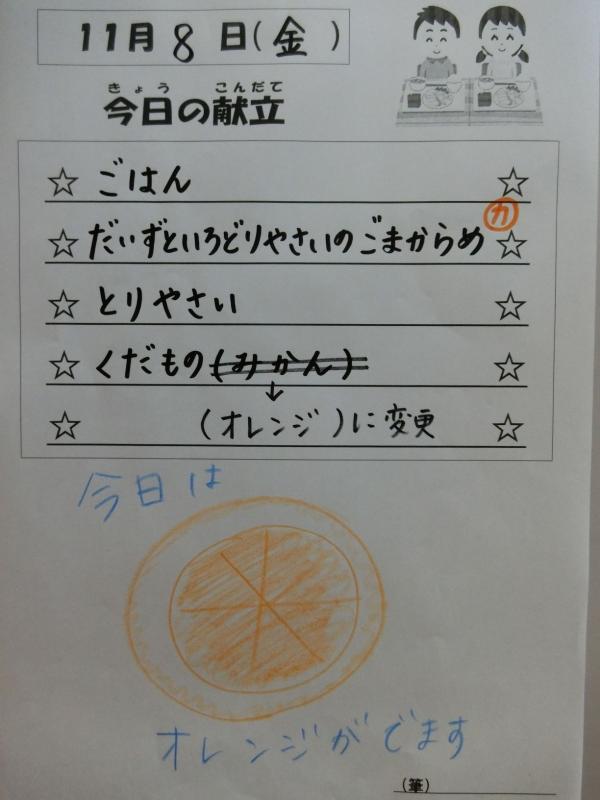 11月8日(金)
きょう こんだて
今日の献立
☆ ごはん ☆
カ
☆ だいずといろどりやさいのごまからめ ☆
☆ とりやさい ☆
☆ くだもの(みかん) ☆
↓
☆ (オレンジ)に変更 ☆
今日は
オレンジがでます
(筆)